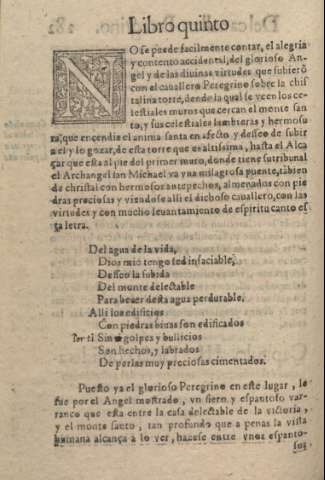 Libro quinto
NO se puede facilmente contar, el alegria
y contento accidental, del glorioso An-
gel y de las diuinas virtudes que subierõ
con el cauallero Peregrino sobre la chris
talina torre, dende la qual se veen los ce-
lestiales muros que cercan el monte san
to, y sus celestiales lumbreras y hermosu
ra, que encendie el anima santa en afecto, y desseo de subir
a el y lo gozar, de esta torre que es altissima, hasta el Alca
çar que esta al pie del primer muro, donde tiene su tribunal
el Archangel san Michael va vna milagrosa puente, tãbien
de christal con hermosos antepechos, almenados con pie
dras preciosas y viendose alli el dichoso cauallero, con las
virtudes y con mucho leuantamiento de espiritu canto es
ta letra.
Del agua de la vida,
Dios mio tengo sed insaciable,
Desseo la subida
Del monte delectable
Para beuer desta agua perdurable,
Alli los edificios
Con piedras biuas son edificados
Sin golpes y bullicios
Son hechos, y labrados
De perlas muy preciosas cimentados.
Puesto ya el glorioso Peregrino en este lugar, le
fue por el Angel mostrado, vn fiero y espantoso var-
ranco que esta entre la casa delectable de la victoria,
y el monte santo, tan profundo que a penas la vista
humana alcança a lo ver, hacese entre vnos espanto-
sos